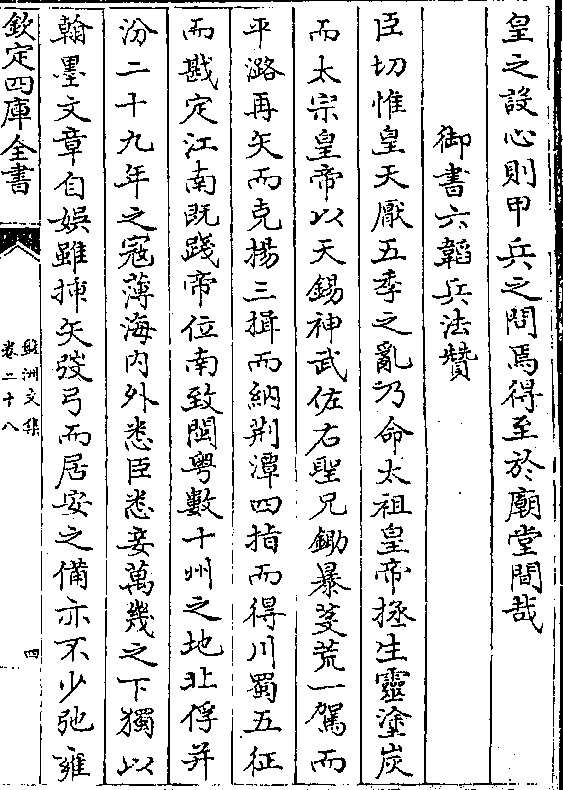 皇之設心則甲兵之問焉得至於廟堂間哉
御書六韜兵法贊
臣切惟皇天厭五季之亂乃命太祖皇帝拯生靈塗炭
而太宗皇帝以天錫神武佐右聖兄鋤暴芟荒一駕而
平潞再矢而克揚三揖而納荆潭四指而得川蜀五征
而戡定江南既踐帝位南致閩粤數十州之地北俘并
汾二十九年之冦薄海内外悉臣悉妾萬幾之下獨以
翰墨文章自娯雖挿矢弢弓而居安之備亦不少弛雍
欽定四庫全書
盤洲文集
卷二十八
四